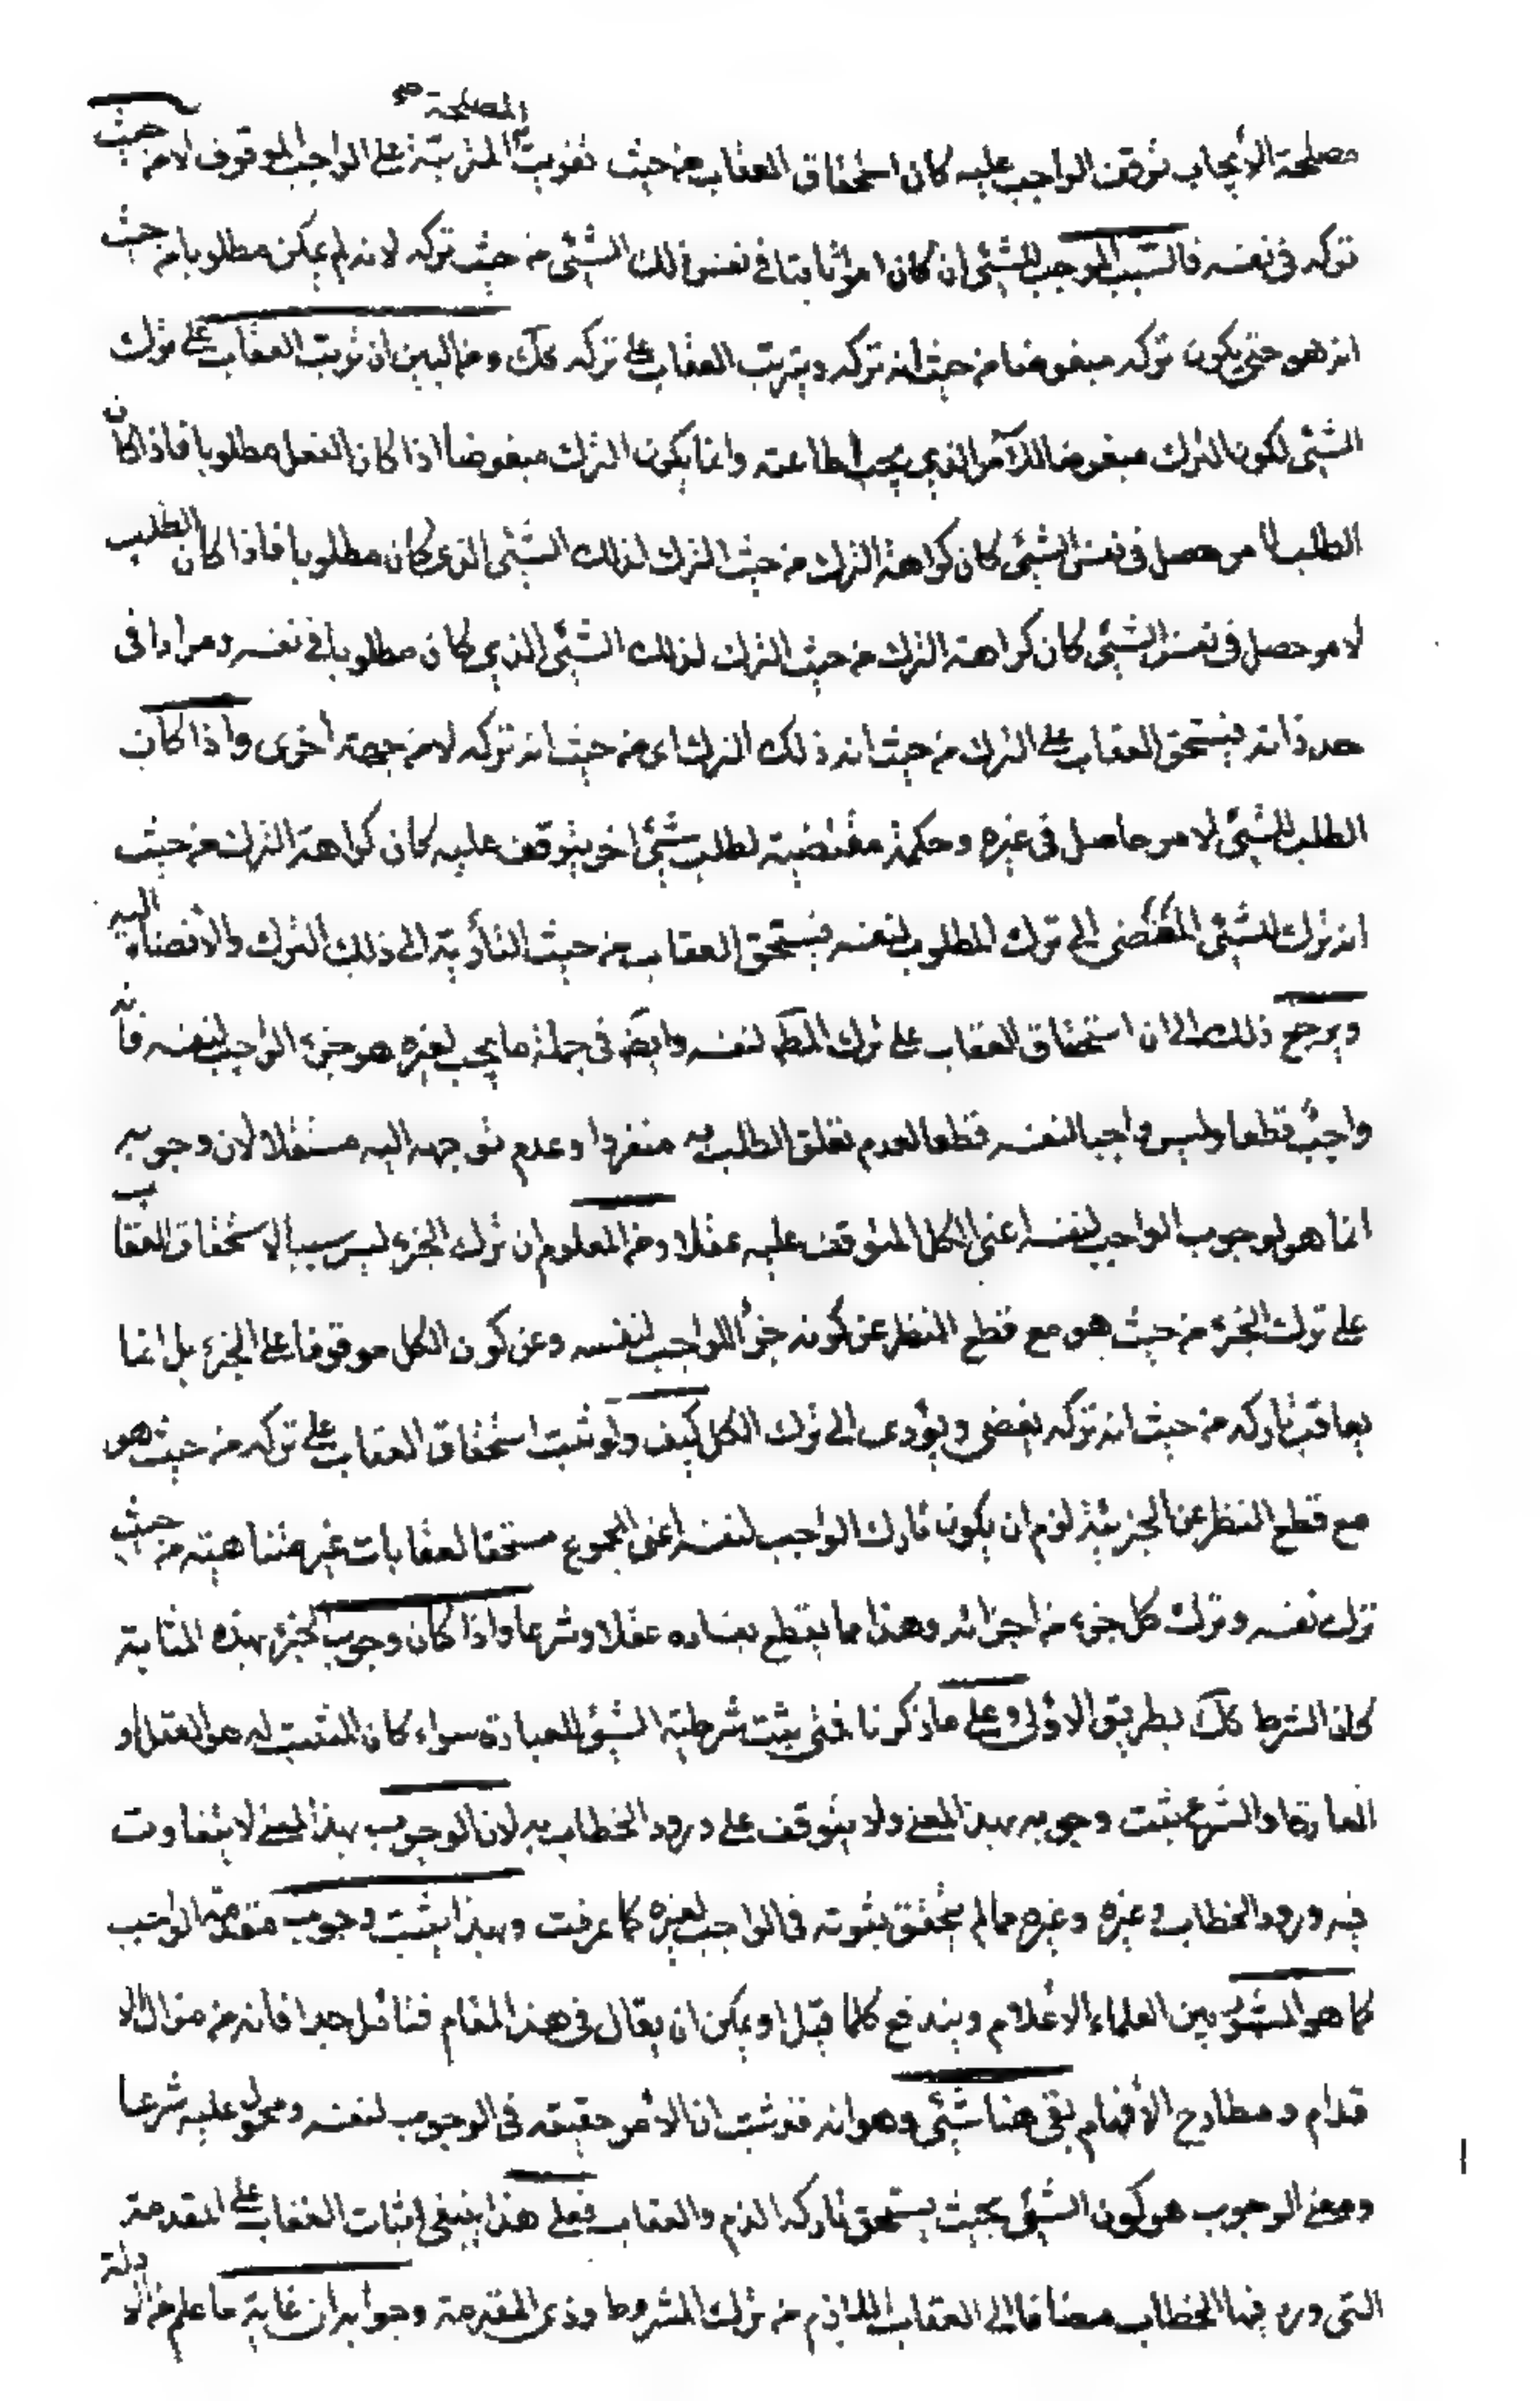 المصلحة صح
مصلحة الأيجاب توقف الواجب عليه كان استحقاق العقاب من حيث تفويت المترتبة على الواجب الموقوف لا من حيث
تركه فى نفسه فالسبب الموجب للشئ ان كان امرا ثابتا في نفس ذلك الشئى من حيث تركه لانه لم يمكن مطلوبا من حيث
انه هو حتى يكون تركه مبغوضا من حيث انه تركه ويترتب العقاب على تركه كك ومن البين ان ترتب العقاب على ترك
الشئى لكون الترك مبغوضا للآمر الذي يجب اطاعته وانما يكون الترك مبغوضا اذا كان الفعل مطلوبا فاذا كان
الطلب لامر حصل فى نفس الشئ كان كراهة الترك من حيث الترك لذلك الشئى الذى كان مطلوبا فاذا كان الطلب
لامر حصل فى نفس الشئى كان كراهة الترك من حيث الترك لذلك الشئى الذي كان مطلوبا في نفسه ومرادا فى
حد ذاته فيستحق العقاب على الترك من حيث انه ذلك الترك اى من حيث انه تركه لا من جهة اخرى واذا كان
الطلب للشئى لامر حاصل فى غيره وحكمة مقتضية لطلب شئى اخر يتوقف عليه كان كراهة الترك من حيث
انه ترك للشئى المفضى الى ترك المطلوب لنفسه فيستحق العقاب من حيث التأدية الى ذلك الترك والافضاء اليه
ويرجع ذلك الى ان استحقاق العقاب على ترك المط لنفسه وايض فى جملة ما يجب لغيره هو جزء الواجب لنفسه فانه
واجب قطعا وليس واجبا لنفسه قطعا لعدم تعلق الطلب به منفردا وعدم توجهه اليه مستقلا لان وجوبه
انما هو لوجوب الواجب لنفسه اعنى الكل المتوقف عليه عقلا ومن المعلوم ان ترك الجزء ليس سببا لاستحقاق العقاب
على ترك الجزء من حيث هو مع قطع النظر عن كونه جزأ للواجب لنفسه وعن كون الكل موقوفا على الجزء بل انما
يعاقب تاركه من حيث انه تركه يفضى ويؤدى الى ترك الكل كيف ولو ثبت استحقاق العقاب على تركه من حيث هو
مع قطع النظر عن الجزئية لزم ان يكون تارك الواجب لنفسه اعنى المجموع مستحقا لعقابات غير متناهية من حيث
ترك نفسه وترك كل جزء من اجزائه وهذا ما يقطع بفساده عقلا وشرعا واذا كان وجوب الجزء بهذه المثابة
كان الشرط كك بطريق الاولى وعلى ما ذكرنا فمتى يثبت شرطية الشئ للعبادة سواء كان المثبت له هو العقل او
العادة او الشرع يثبت وجوبه بهذا المعنى ولا يتوقف على ورود الخطاب به لان الوجوب بهذا المعنى لا يتفاوت
فيه ورود الخطاب وغيره وغيره مما لم يتحقق بثبوته فى الواجب لغيره كما عرفت وبهذا يثبت وجوب مقدمة الواجب
كما هو المشهور بين العلماء الأعلام ويندفع كلما قيل او يمكن ان يقال فى هذا المقام فتامل جدا فانه من مزال الا
قدام ومطارح الأفهام بقى هنا شئى وهو انه قد ثبت ان الأمر حقيقه فى الوجوب لنفسه ومحمول عليه شرعا
ومعنى الوجوب هو كون الشئى بحيث يستحق تاركه الذم والعقاب فعلى هذا ينبغى اثبات العقاب على المقدمة
التى ورد فيها الخطاب مضافا الى العقاب اللازم من ترك المشروط وذى المقدمة وجوابه ان غاية ما علم من الادلة